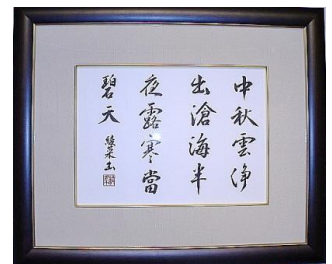 中秋雲净
出滄海半
夜露寒當
碧天